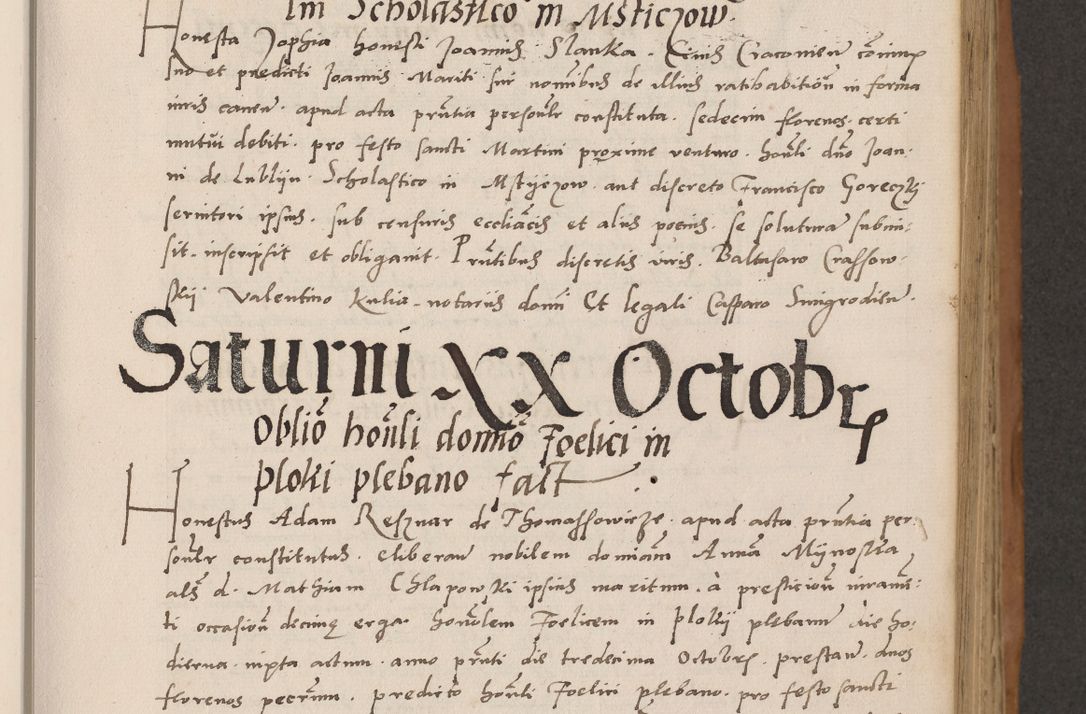 Im Scholastico in Msticzow.
Honesta Sophia honesti Joannis Slanka. Civis Cracovien̄ coniunx
suo et predicti Joannis Mariti sui nominibus de illius ratihabitiōn in forma
iuris caven̄. apud acta pn̄tia personlr constituta. sedecim florenos. certi
mutui debiti. pro festo sancti Martini proxime venturo. honli dno Joan-
ni de Lublijn Scholastico in Mstijczow. aut discreto Francisco Goreczkj
servitori ipsius. sub censuris eccliācis et aliis poenis. se soluturā submi:
sit. inscripsit et obligavit. Pn̄tibus discretis viris. Baltasaro Crassow-
skij Valentino Kulia. notariis domi Et legali Casparo Smigrodien̄.
Saturni XX Octobr
Oblio honli domino Foelici in
Ploki plebano fact
Honestus Adam Resznar de Thomassowicze. apud acta pn̄tia per-
sonlr constitutus. eliberan̄ nobilem dominam Annā Mijnostka
als d. Mathiam Chlapowski ipsius maritum. à prestitiōn iuramē:
ti occasiōn decimę erga honlem Foelicem in Plokij plebanum die ho:
dierna. iuxta actum. anno pn̄ti die tredecima Octobr. prestan̄. duos
florenos pecunn. predicto honli Foelici plebano. pro festo sancti